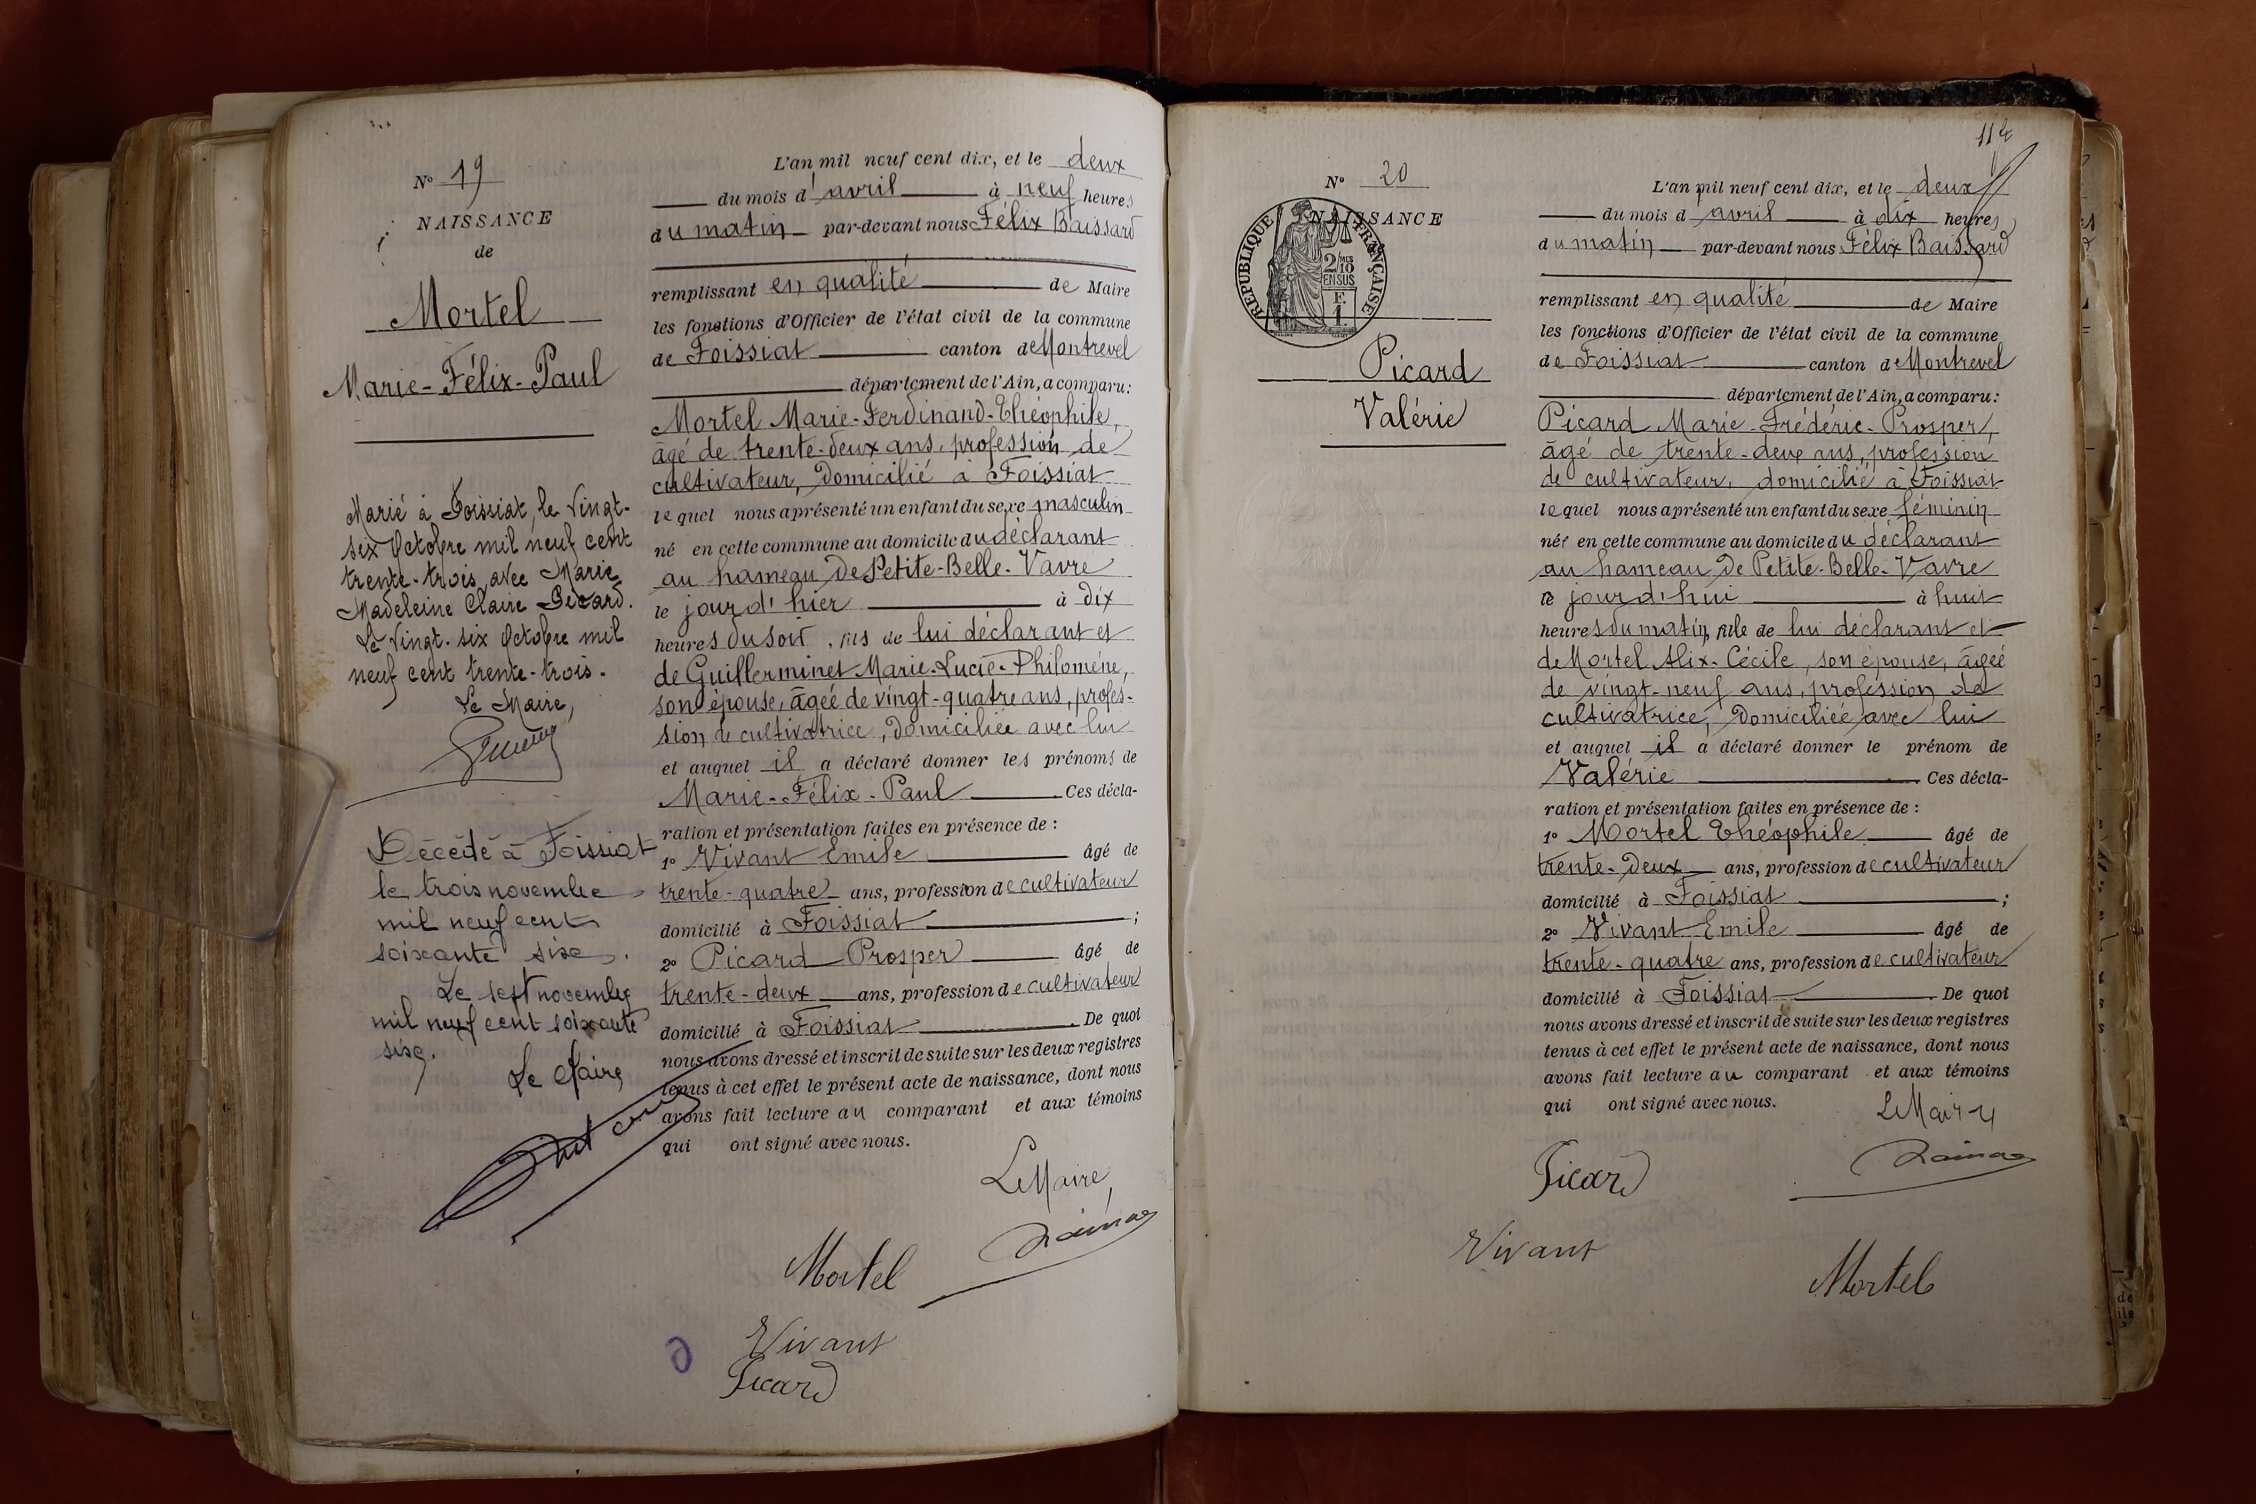 N° 19
NAISSANCE
de
Mortel
Marie-Félix-Paul
Marié à Foissiat, le Vingt-
six Octobre mil neuf cent
trente-trois avec Marie
Madeleine Claire
Le Vingt-six Octobre mil
neuf cent trente-trois.
Le Maire,
Décédé à Foissiat
le trois novembre
mil neuf cent
soixante six.
Le sept novembre
mil neuf cent soixante
six.
Le Maire
L'an mil neuf cent dix, et le deux
du mois d'avril à neuf heures
du matin par-devant nous Félix Baissard
remplissant en qualité de Maire
les fonctions d'Officier de l'état civil de la commune
de Foissiat canton de Montrevel
département de l'Ain, a comparu:
Mortel Marie-Ferdinand-Théophile,
âgé de trente-deux ans, profession de
cultivateur, domicilié à Foissiat
lequel nous a présenté un enfant du sexe masculin
né en cette commune au domicile du déclarant
au hameau de Petite-Belle-Vavre
le jour d'hier à dix
heures du soir, fils de lui déclarant et
de Guillerminet Marie-Lucie-Philomène,
son épouse, âgée de vingt-quatre ans, profes-
sion de cultivatrice, domiciliée avec lui
et auquel il a déclaré donner les prénoms de
Marie-Félix-Paul Ces décla-
ration et présentation faites en présence de :
1° Vivant Emile âgé de
trente-quatre ans, profession de cultivateur
domicilié à Foissiat ;
2° Picard Prosper âgé de
trente-deux ans, profession de cultivateur
domicilié à Foissiat. De quoi
nous avons dressé et inscrit de suite sur les deux registres
tenus à cet effet le présent acte de naissance, dont nous
avons fait lecture au comparant et aux témoins
qui ont signé avec nous.
Le Maire
Mortel
Vivant
Picard
114
N° 20
NAISSANCE
RÉPUBLIQUE FRANÇAISE
2/10
EN SUS
F.
1.
Picard
Valérie
L'an mil neuf cent dix, et le deux
du mois d avril à dix heures
du matin par-devant nous Félix Baissard
remplissant en qualité de Maire
les fonctions d'Officier de l'état civil de la commune
de Foissiat canton de Montrevel
département de l'Ain, a comparu:
Picard Marie-Frédéric-Prosper,
âgé de trente-deux ans, profession
de cultivateur, domicilié à Foissiat
lequel nous a présenté un enfant du sexe féminin
née en cette commune au domicile du déclarant
au hameau de Petite-Belle-Vavre
le jour d'hui à huit
heures du matin, fille de lui déclarant et
de Mortel Alix-Cécile, son épouse, âgée
de vingt-neuf ans, profession de
cultivatrice, domiciliée avec lui
et auquel il a déclaré donner le prénom de
Valérie Ces décla-
ration et présentation faites en présence de :
1° Mortel Théophile âgé de
trente-deux ans, profession de cultivateur
domicilié à Foissiat ;
2° Vivant Emile âgé de
trente-quatre ans, profession de cultivateur
domicilié à Foissiat. De quoi
nous avons dressé et inscrit de suite sur les deux registres
tenus à cet effet le présent acte de naissance, dont nous
avons fait lecture au comparant et aux témoins
qui ont signé avec nous.
Le Maire
Picard
Vivant
Mortel